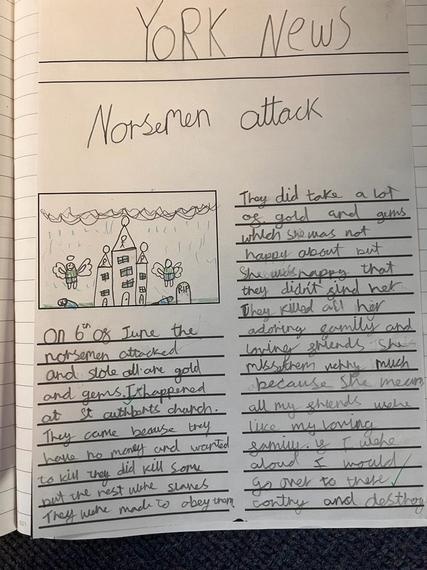 YORK NEWS
Norsemen attack
RIP
On 6th of June the
norsemen attacked
and stole all are gold
and gems. It happened
at St cuthberts church.
They came because they
have no money and wanted
to kill they did kill some
but the rest were slaves
They were made to obey them
They did take a lot
of gold and gems
which she was not
happy about but
she was happy that
they didn't find her
They killed all her
adoring family and
loving friends. She
miss them very much
because she means
all my friends were
like my loving
family. if I were
aloud I would
go over to there
contry and destroy